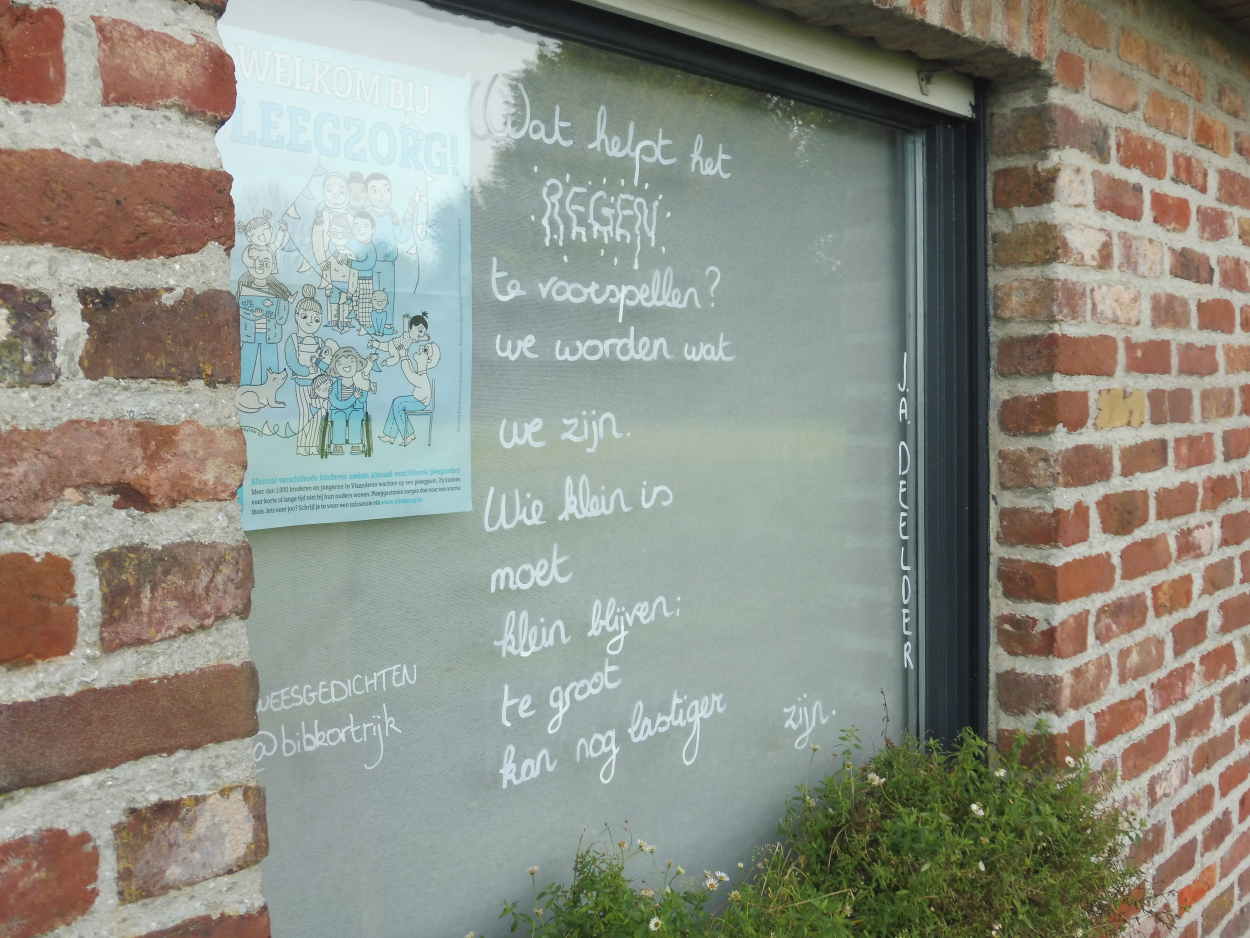 WELKOM BIJ
LEEGZORG!
Allemaal verschillende kinderen zoeken allemaal verschillende pleegouders
Meer dan 1000 kinderen en jongeren in Vlaanderen wachten op een pleeggezin. Zij kunnen
voor korte of lange tijd niet bij hun ouders wonen. Pleeggezinnen zorgen dan voor een warme
thuis. Iets voor jou? Schrijf je in voor een infosessie via www.pleegzorg.be.
Wat helpt het
REGEN
te voorspellen?
we worden wat
we zijn.
Wie klein is
moet
klein blijven;
te groot
kan nog lastiger zijn.
J.A DEELDER
WEESGEDICHTEN
@bibkortrijk